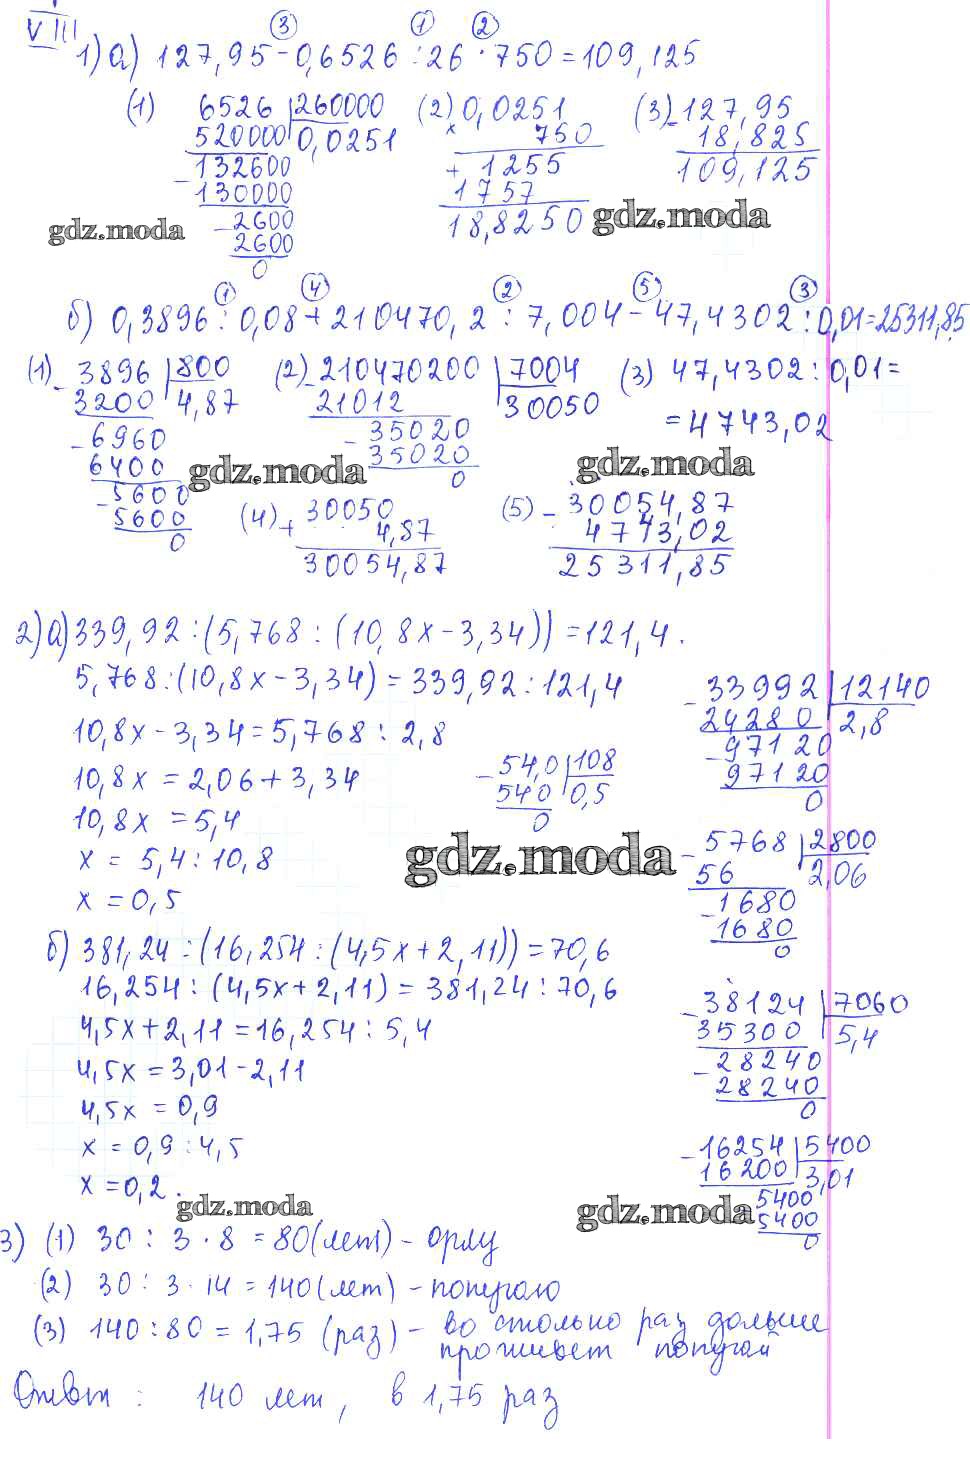 VIII
③ ① ②
1) а) 127,95 - 0,6526 : 26 · 750 = 109,125
(1) 6526 | 260000
520000 | 0,0251
- 132600
130000
- 2600
2600
0
(2) 0,0251
× 750
+ 1255
1757
18,8250
(3) - 127,95
18,825
109,125
gdz.moda
gdz.moda
① ④ ② ⑤ ③
б) 0,3896 : 0,08 + 210470,2 : 7,004 - 47,4302 : 0,01 = 25311,85
(1) - 3896 | 800
3200 | 4,87
- 6960
6400
- 5600
5600
0
(2) - 210470200 | 7004
21012 | 30050
- 35020
35020
0
(3) 47,4302 : 0,01 =
= 4743,02
gdz.moda
gdz.moda
(4) + 30050
4,87
30054,87
(5) - 30054,87
4743,02
25311,85
2) а) 339,92 : (5,768 : (10,8x - 3,34)) = 121,4.
5,768 : (10,8x - 3,34) = 339,92 : 121,4
10,8x - 3,34 = 5,768 : 2,8
10,8x = 2,06 + 3,34
10,8x = 5,4
x = 5,4 : 10,8
x = 0,5
- 54,0 | 108
540 | 0,5
0
- 33992 | 12140
24280 | 2,8
- 97120
97120
0
gdz.moda
- 5768 | 2800
56 | 2,06
- 1680
1680
0
б) 381,24 : (16,254 : (4,5x + 2,11)) = 70,6
16,254 : (4,5x + 2,11) = 381,24 : 70,6
4,5x + 2,11 = 16,254 : 5,4
4,5x = 3,01 - 2,11
4,5x = 0,9
x = 0,9 : 4,5
x = 0,2.
- 38124 | 7060
35300 | 5,4
- 28240
28240
0
- 16254 | 5400
16200 | 3,01
5400
5400
0
gdz.moda
gdz.moda
3) (1) 30 : 3 · 8 = 80 (лет) - орлу
(2) 30 : 3 · 14 = 140 (лет) - попугаю
(3) 140 : 80 = 1,75 (раз) - во столько раз дольше
проживет попугай
Ответ : 140 лет, в 1,75 раз